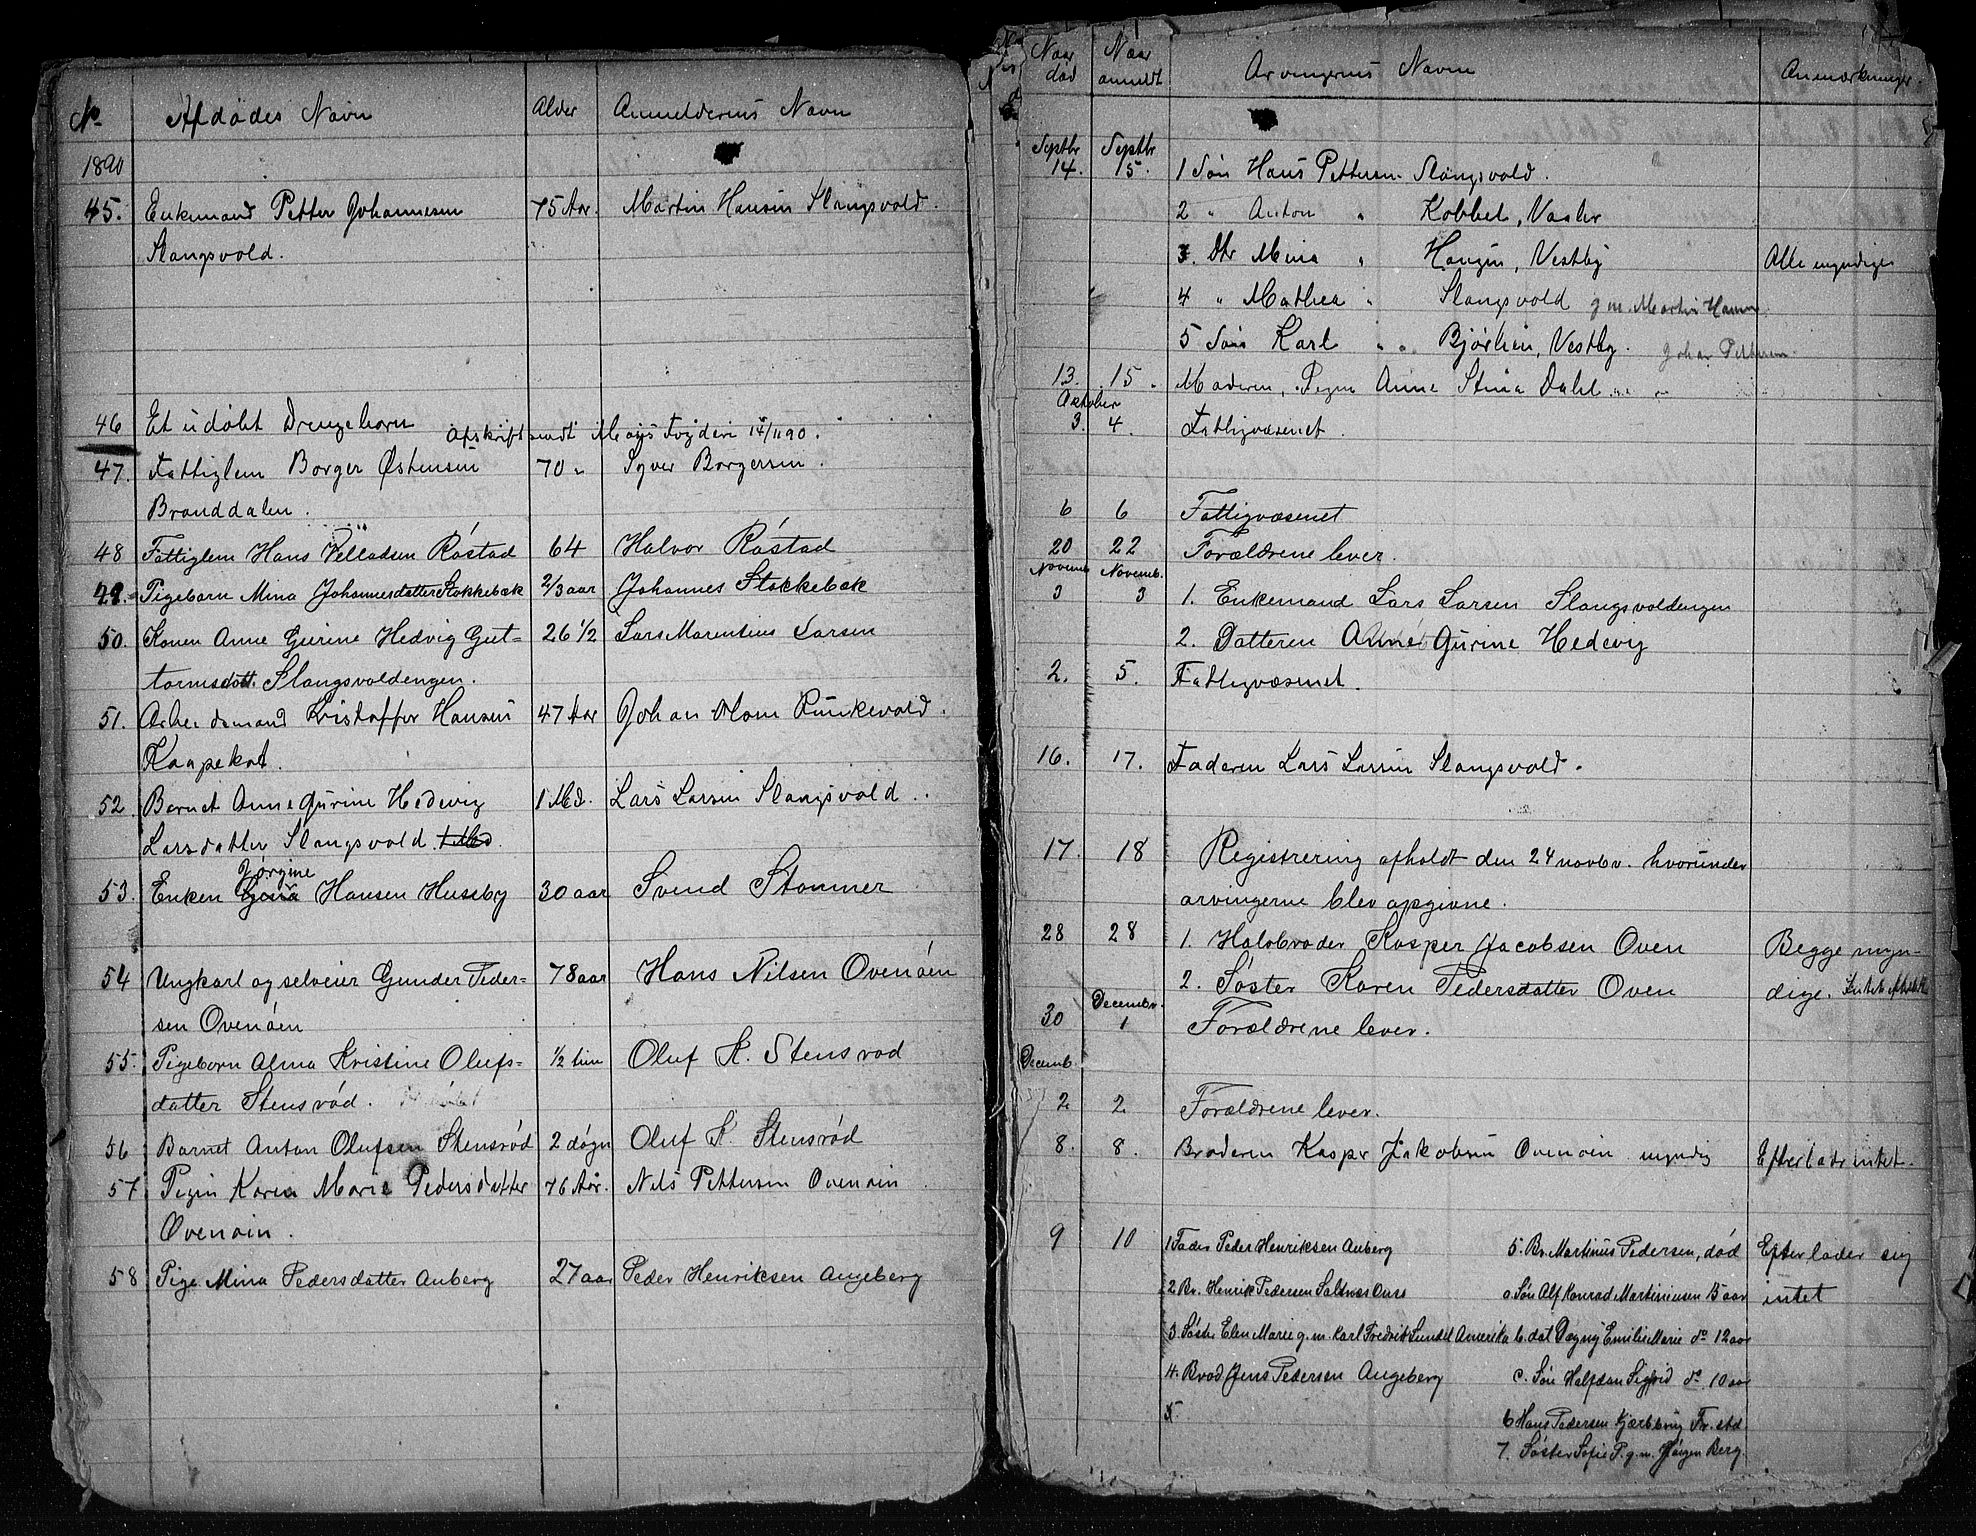 No Afdødes Navn Alder Anmelderens Navn
1890
45. Enkemand Petter Johannesen 75 Aar. Martin Hansen Slangsvold.
Slangsvold.
46 Et udøbt Drengebarn
Afskrift sendt
47. Fattiglem Borger Østensen 70 " Syver Borgersen.
Branddalen.
48 Fattiglem Hans Velladsen Røstad 64 Halvor Røstad
49. Pigebarn Mina Johannesdatter Stokkebæk 2/3 aar Johannes Stokkebæk
50. Konen Anne Gurine Hedvig Gut- 26 1/2 Lars Marentius Larsen
tormsdatt. Slangsvoldengen.
51. Arbeidsmand Kristoffer Hansen 47 Aar Johan Runkevold.
Kaapekot.
52. Barnet Anne Gurine Hedevig 1 Md. Lars Larsen Slangsvold.
Larsdatter Slangsvold.
Jørgine
53. Enken Hansen Huseby 30 aar Svend Stomner
54 Ungkarl og selveier Gunder Peder- 78 aar Hans Nilsen Ovenøen
sen Ovenøen
55. Pigebarn Alma Kristine Olufs- 1/2 tim Oluf K. Stensrød
datter Stensrød.
56 Barnet Anton Olufsen Stensrød 2 døgn Oluf K. Stensrød
57 Pigen Karen Marie Pedersdatter 76 Aar. Nils Pettersen Ovenøien
Ovenøien.
58 Pige Mina Pedersdatter Auberg 27 aar Peder Henriksen Augeberg
Naar død Naar anmeldt Arvingernes Navne Anmærkninger
Septbr Septbr
14. 15. 1 Søn Hans Pettersen Slangsvold.
2 " Anton " Kobbel, Vaaler
3. Dtr Mina " Haugen, Vestby Alle myndige
4 " Mathea " Slangsvold g.m. Martin Hansen
5 Søn Karl " " Bjørlien, Vestby. Johan Pettersen
13. 15. Moderen, Pigen Anne Stina Dahl
Oktober
3. 4. Fattigvæsenet.
6 6 Fattigvæsenet
20 22 Forældrene lever.
Novemb Novemb.
3 3 1. Enkemand Lars Larsen Slangsvoldengen
2. Datteren Anne Gurine Hedevig
2. 5. Fattigvæsenet.
16. 17. Faderen Lars Larsen Slangsvold.
17. 18 Registrering afholdt den 24 novbr. hvorunder
arvingerne blev opgivne.
28 28 1. Halvbroder Kasper Jacobsen Oven Begge myn-
2. Søster Karen Pedersdatter Oven dige.
Decembr.
30 1 Forældrene lever.
Decemb.
2 2 Forældrene lever.
8. 8. Broderen Kasper Jakobsen Ovenøien myndig Efterlader intet.
9 10 1 Fader Peder Henriksen Auberg 5. Br. Martinus Pedersen, død Efterlader sig
2 Br. Henrik Pedersen Saltnes Onsø a Søn Alf Konrad Martiniusen 15 aar intet
3 Søster Elen Marie g.m. Karl Fredrik Sundel Amerika b. dat Dagny Emilie Marie do 12 aar
4. Brod Jens Pedersen Augeberg c. Søn Halfdan Sigfrid do 10 aar
5. 6 Hans Pedersen Kjærbbrug Fr.std.
7. Søster Sofie P. g.m. Jørgen Berg.